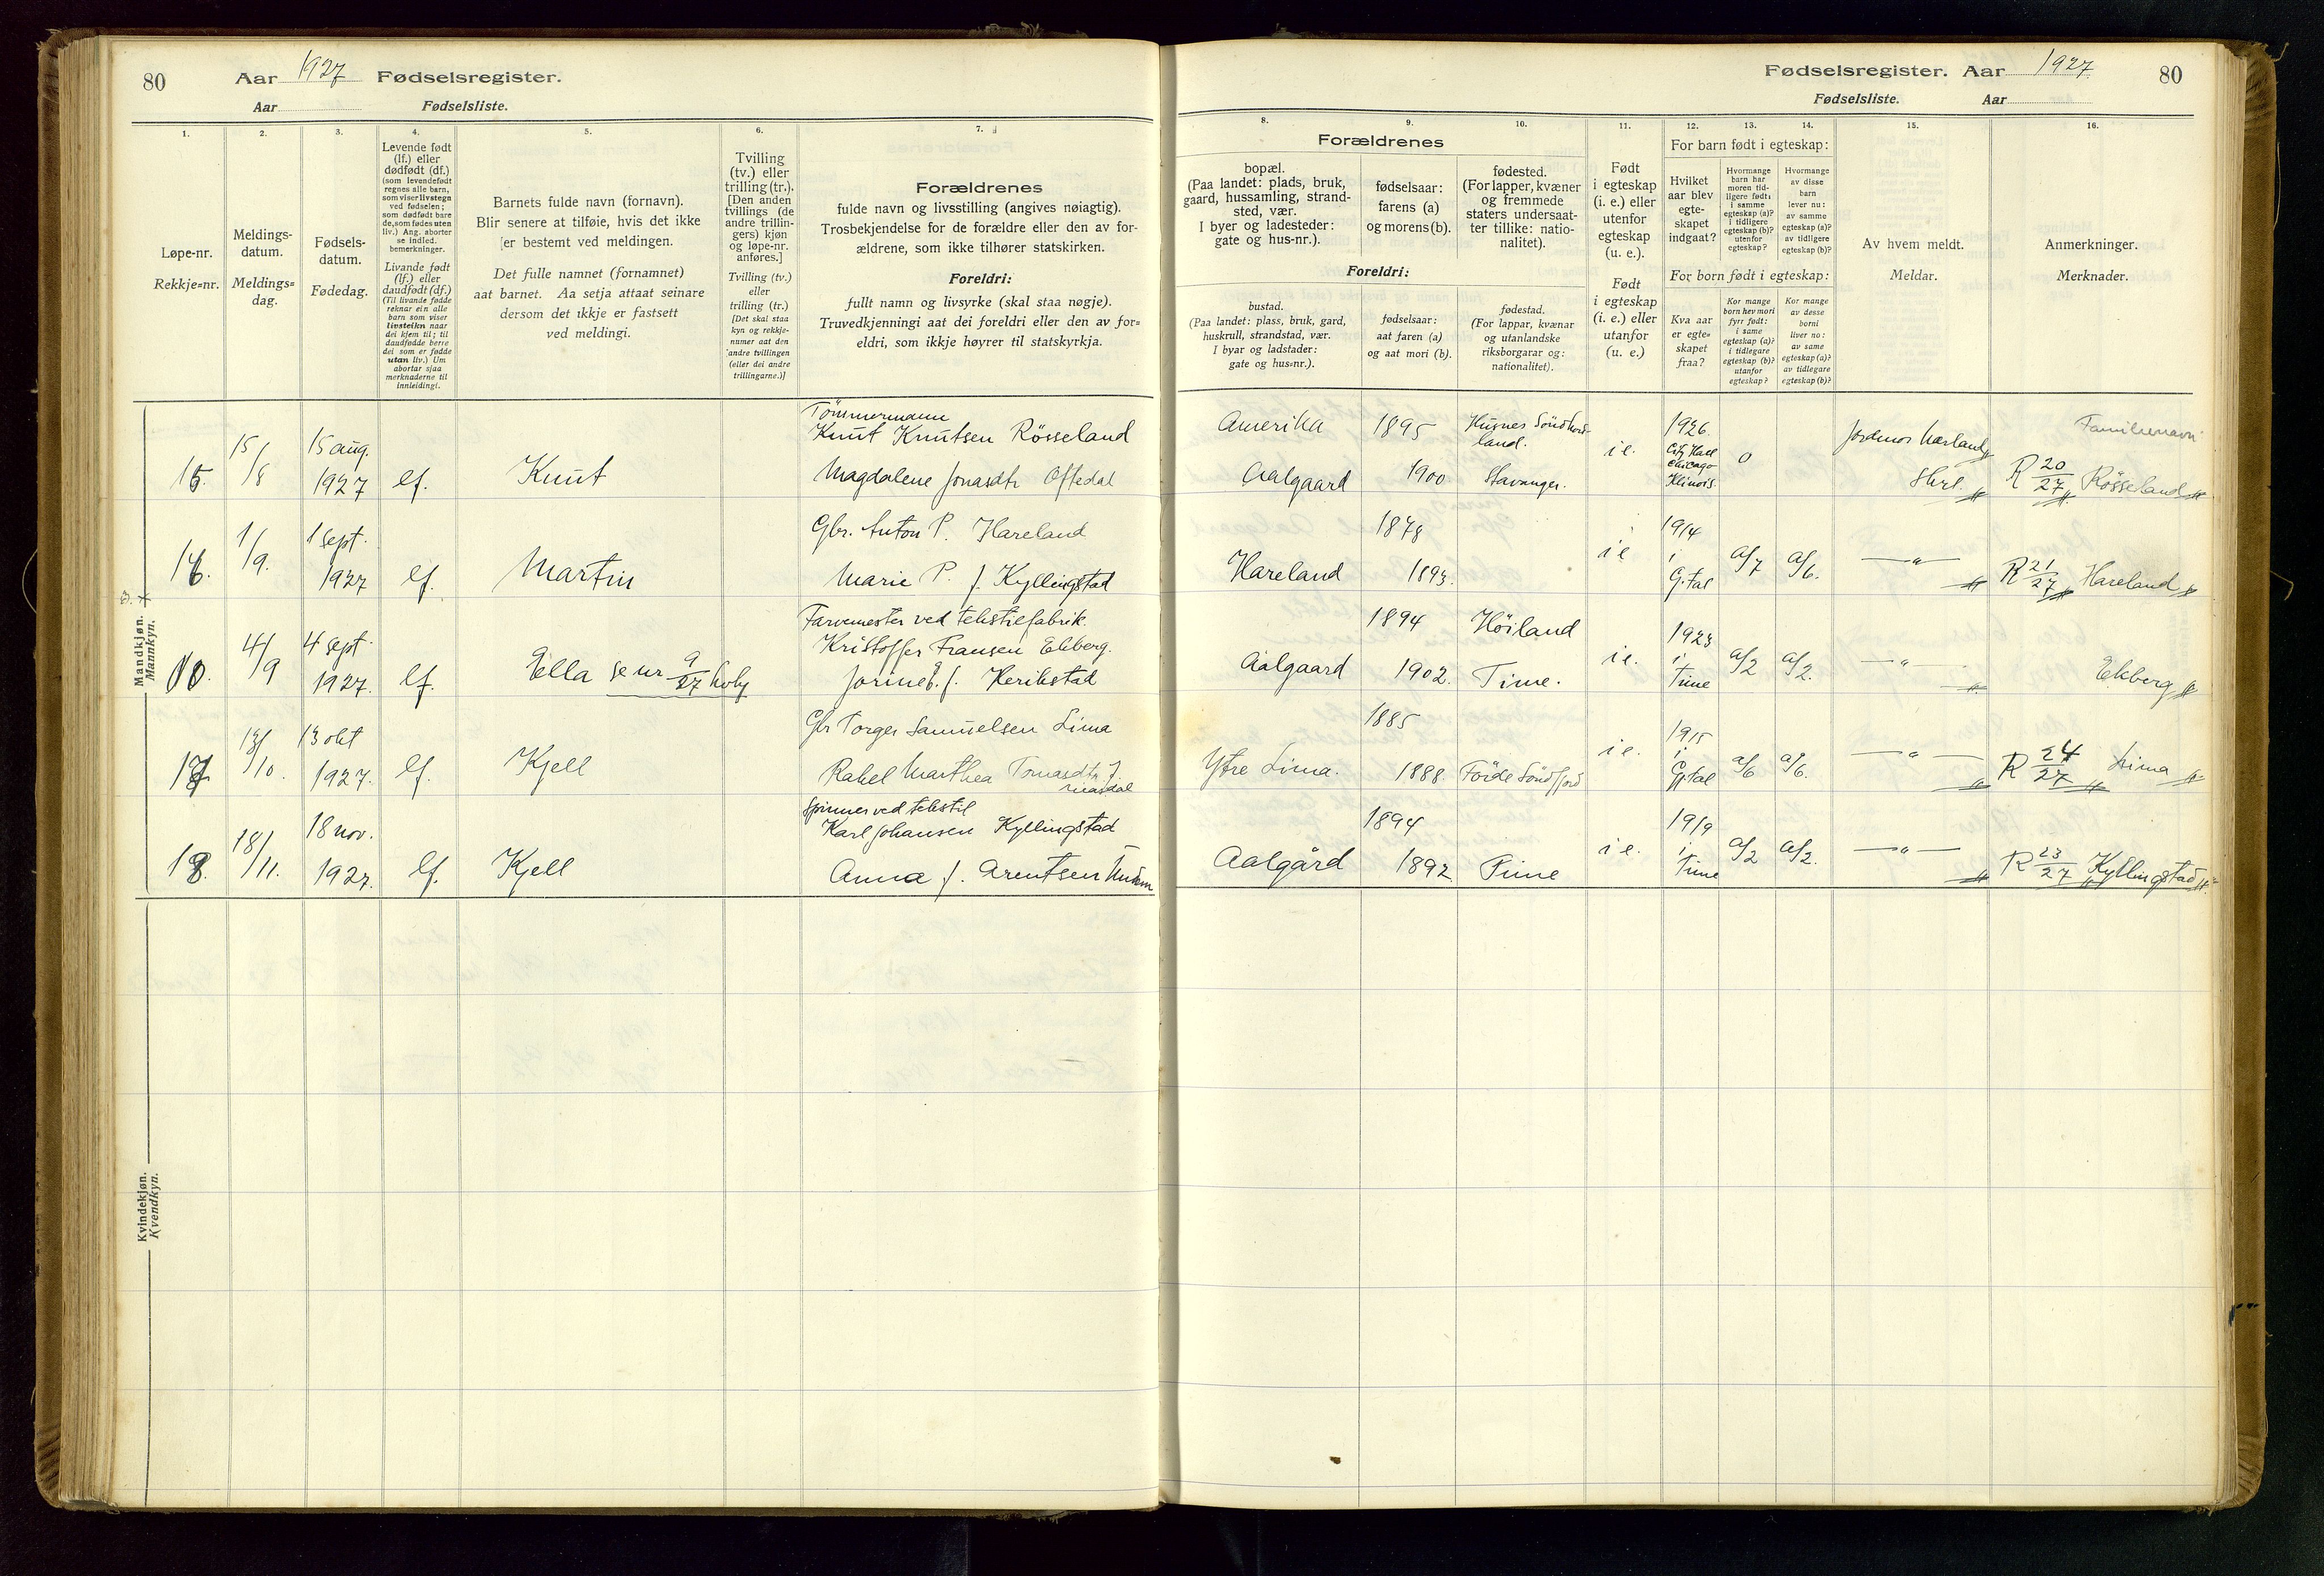 80 Aar 1927 Fødselsregister.
Aar Fødselsliste.
Fødselsregister. Aar 1927 80
Fødselsliste. Aar
1. 2. 3. 4. 5. 6. 7.
Løpe-nr.
Rekkje=nr.
Meldings-
datum.
Meldings=
dag.
Fødsels-
datum.
Fødedag.
Levende født
(lf.) eller
dødfødt (df.)
(som levendefødt
regnes alle barn,
som viser livstegn
ved fødselen;
som dødfødt bare
de, som fødes uten
liv.) Ang. aborter
se indled.
bemerkninger.
Livande født
(lf.) eller
daudfødt (df.)
(Til livande fødde
reknar ein alle
barn som viser
livsteikn naar
dei kjem til; til
daudfødde berre
dei som er fødde
utan liv.) Um
abortar sjaa
merknaderne til
innleidingi.
Barnets fulde navn (fornavn).
Blir senere at tilføie, hvis det ikke
er bestemt ved meldingen.
Det fulle namnet (fornamnet)
aat barnet. Aa setja attaat seinare
dersom det ikkje er fastsett
ved meldingi.
Tvilling
(tv.) eller
trilling (tr.).
[Den anden
tvillings (de
andre trillin-
gers) kjøn
og løpe-nr.
anføres.]
Tvilling (tv.)
eller
trilling (tr.)
[Det skal staa
kyn og rekkje-
numer aat den
andre tvillingen
(eller dei andre
trillingarne.)]
Forældrenes
fulde navn og livsstilling (angives nøiagtig).
Trosbekjendelse for de forældre eller den av for-
ældrene, som ikke tilhører statskirken.
Foreldri:
fullt namn og livsyrke (skal staa nøgje).
Truvedkjenningi aat dei foreldri eller den av for=
eldri, som ikkje høyrer til statskyrkja.
8. 9. 10. 11. 12. 13. 14. 15. 16.
Forældrenes
bopæl.
(Paa landet: plads, bruk,
gaard, hussamling, strand-
sted, vær.
I byer og ladesteder:
gate og hus-nr.).
fødselsaar:
farens (a)
og morens (b).
fødested.
(For lapper, kvæner
og fremmede
staters undersaat-
ter tillike: natio-
nalitet).
Foreldri:
bustad.
(Paa landet: plass, bruk, gard,
huskrull, strandstad, vær.
I byar og ladstader:
gate og hus=nr.).
fødselsaar:
aat faren (a)
og aat mori (b).
fødestad.
(For lappar, kvænar
og utanlandske
riksborgarar og:
nationalitet).
Født
i egteskap
(i. e.) eller
utenfor
egteskap
(u. e.).
Født
i egteskap
(i. e.) eller
utanfor
(u. e.)
For barn født i egteskap:
Hvilket
aar blev
egte-
skapet
indgaat?
Hvormange
barn har
moren tid-
ligere født:
i samme
egteskap (a)?
i tidligere
egteskap (b)?
utenfor
egteskap?
Hvormange
av disse
barn
lever nu:
av samme
egteskap (a)?
av tidligere
egteskap (b)?
For born født i egteskap:
Kva aar
er egte=
skapet
fraa?
Kor mange
born hev mori
fyrr født:
i same
egteskap (a)?
i tidlegare
egteskap (b)?
utanfor
egteskap?
Kor mange
av desse
borni
liver no:
av same
egteskap (a)?
av tidlegare
egteskap (b)?
Av hvem meldt.
Meldar.
Anmerkninger.
Merknader.
Mandkjøn.
Mannkyn.
Kvindekjøn.
Kvendkyn.
15. 15/8 15 aug. 1927 lf. Knut
Tömmermann
Knut Knutsen Rösseland
Magdalene Jonasdtr Oftedal
Amerika 1895 Husnes Söndhord-
land.
Aalgaard 1900 Stavanger.
i e. 1926.
City Hall
Chicago
Illinois
0 Jordmor Harland
Skrl.
Familienavn
R 20/27 Rösseland
16. 1/9. 1 sept. 1927 lf. Martin
Gbr. Anton P. Hareland
Marie P. f. Kyllingstad
1878
Hareland 1893.
i e 1914
i
G.tal
a/7 a/6. — " —
R 21/27 Hareland
10. 4/9 4 sept. 1927. lf. Ella se nr 9/27
Farvemester ved tekstilfabrik.
Kristoffer Fransen Ekberg.
Jorine f. Herikstad
1894 Höiland
Aalgaard 1902. Time.
i e. 1923
i
Time
a/2 a/2. — " —
Ekberg
17 13/10. 13 okt 1927. lf. Kjell
Gbr Torger Samuelsen Lima
Rakel Marthea Tomasdtr f.
1885
Ytre Lima. 1888. Förde Söndfjord
i e. 1915
i
Gjtal
a/6 a/6. — " —
R 24/27 Lima
18. 18/11. 18 nov. 1927. lf. Kjell
Spinner ved tekstil
Karl Johansen Kyllingstad
Anna f. Arentsen
1894
Aalgård 1892 Time
i e. 1919
i
Time
a/2 a/2. — " —
R 23/27 Kyllingstad